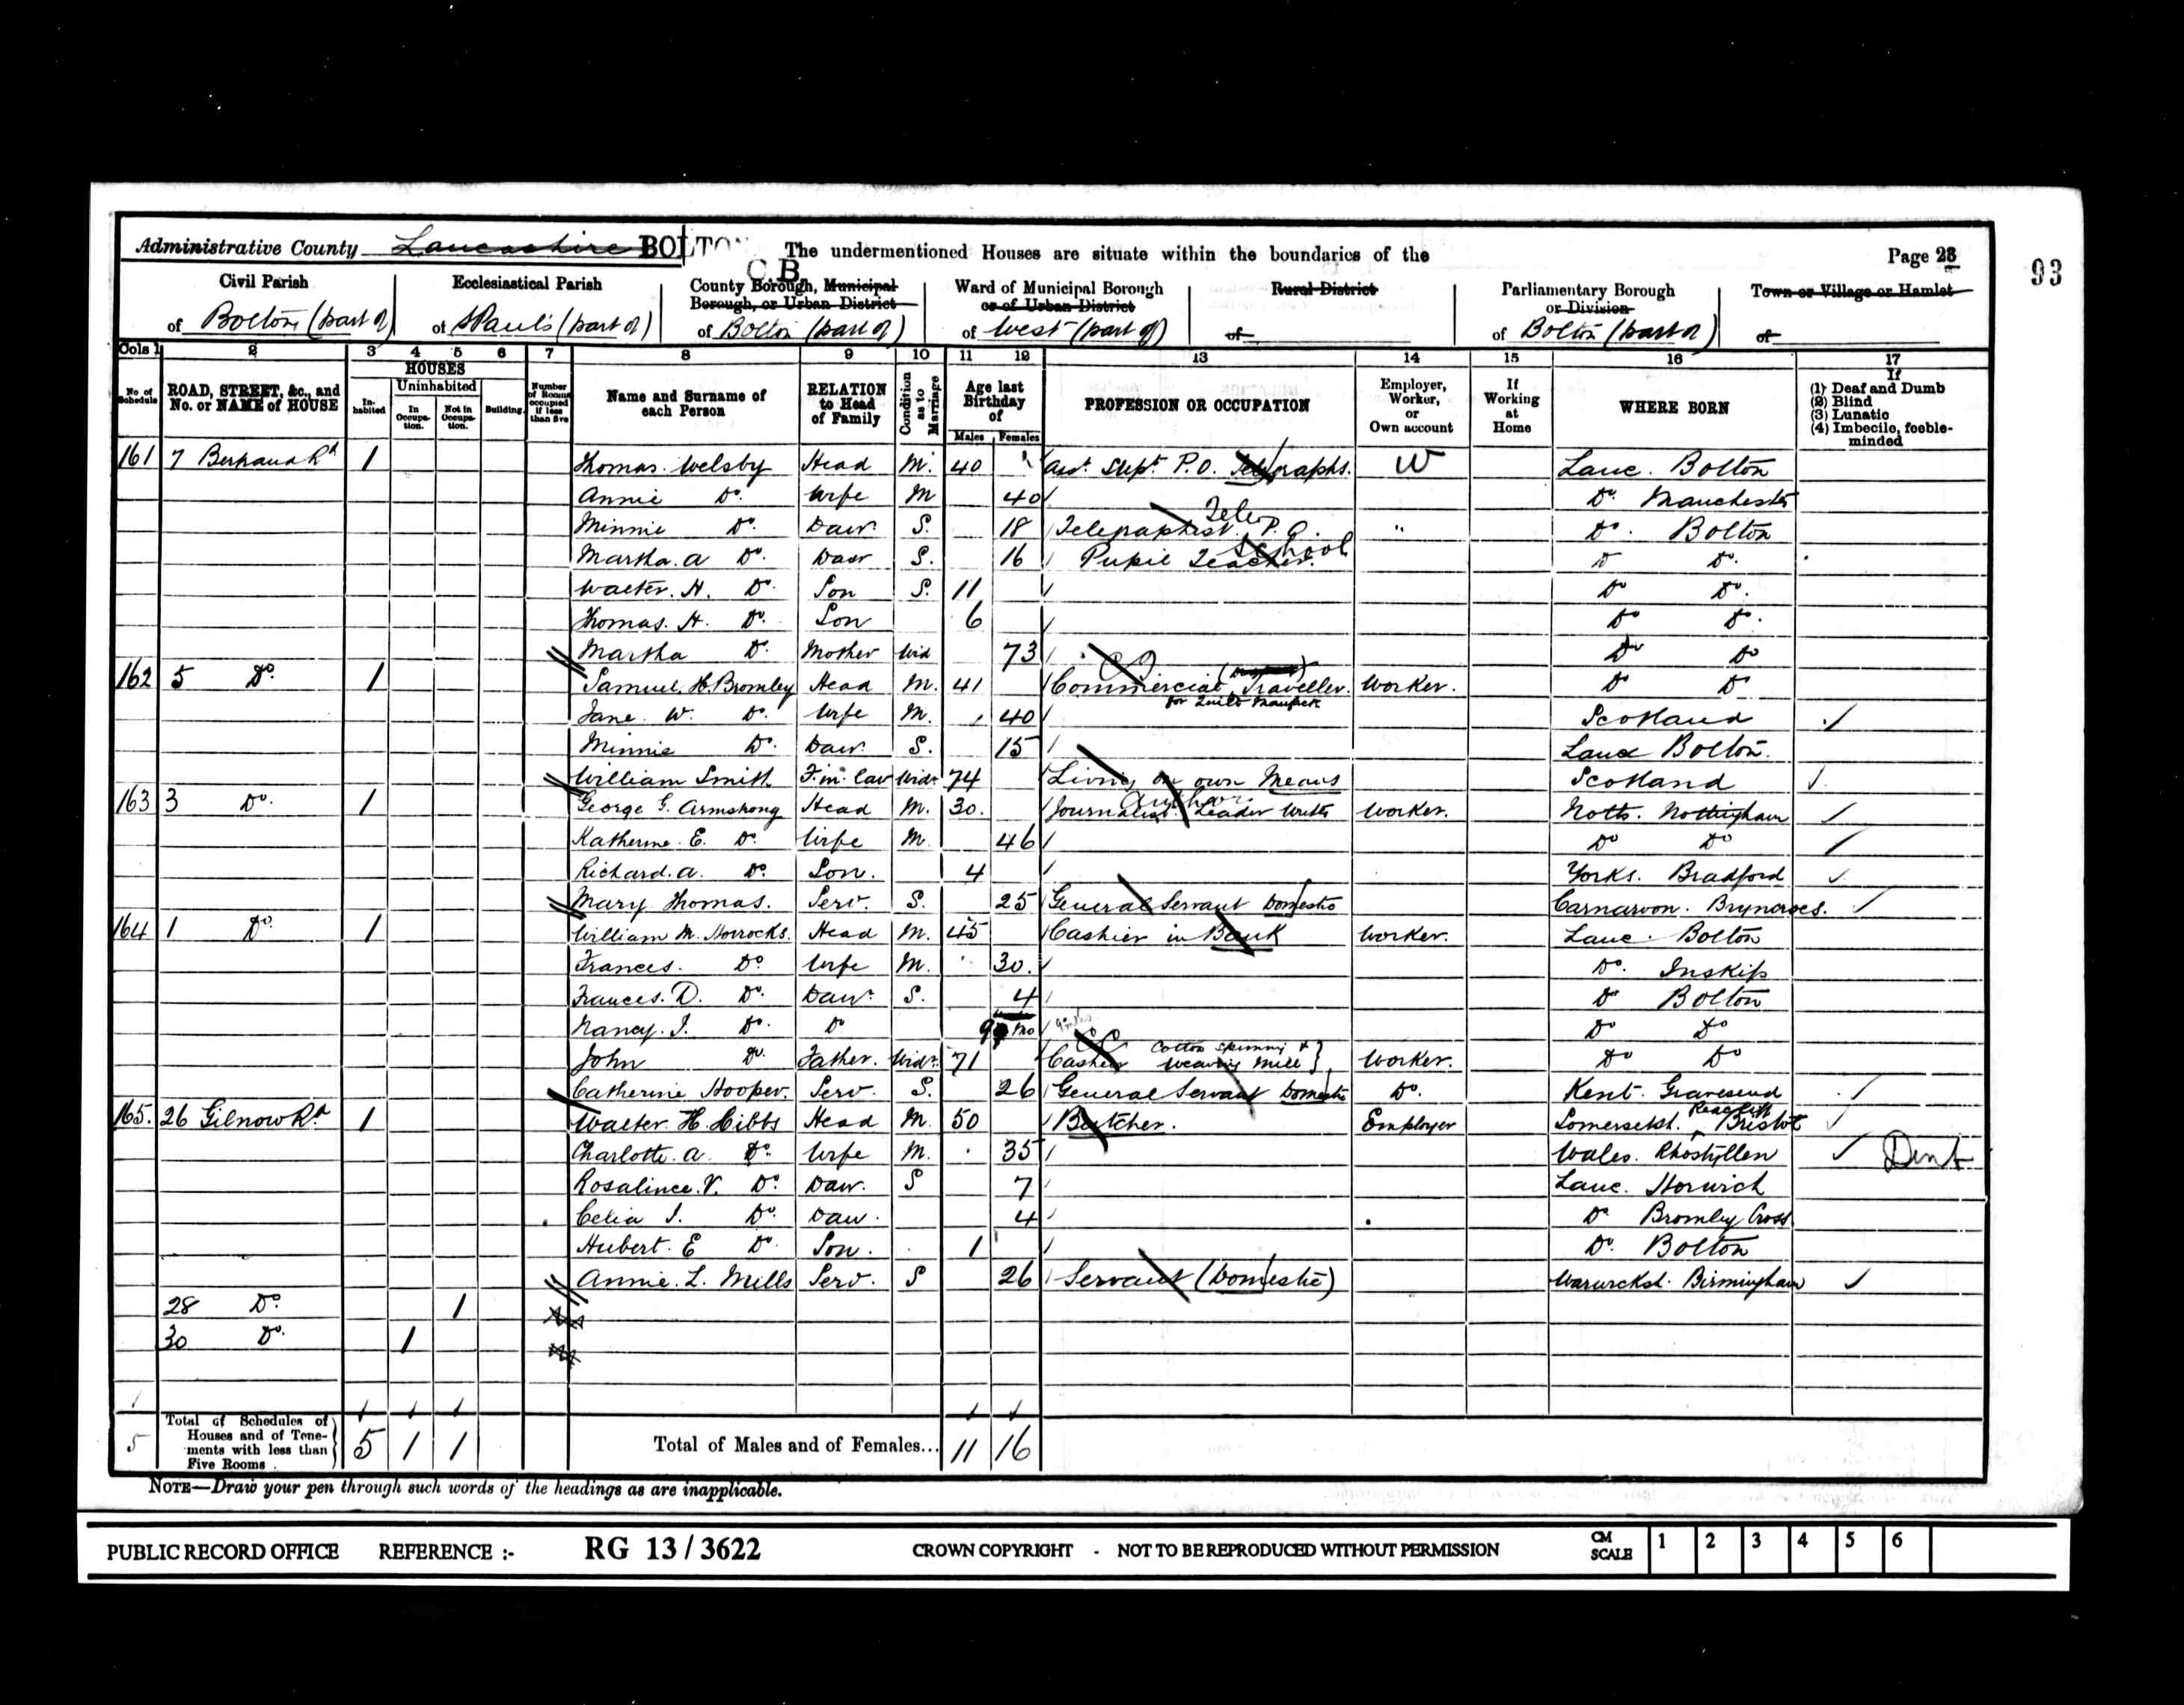 Administrative County Lancashire BOLTON The undermentioned Houses are situate within the boundaries of the Page 23
C.B. 93
Civil Parish Ecclesiastical Parish County Borough, Municipal Borough, or Urban District Ward of Municipal Borough or of Urban District Rural District Parliamentary Borough or Division Town or Village or Hamlet
of Bolton (part of) of St Paul's (part of) of Bolton (part of) of West (part of) of of Bolton (part of) of
Cols 1 2 3 4 5 6 7 8 9 10 11 12 13 14 15 16 17
No. of Schedule ROAD, STREET, &c., and No. or NAME of HOUSE HOUSES Inhabited Uninhabited In Occupation. Not in Occupation. Building. Number of Rooms occupied if less than five Name and Surname of each Person RELATION to Head of Family Condition as to Marriage Age last Birthday of Males Females PROFESSION OR OCCUPATION Employer, Worker, or Own account If Working at Home WHERE BORN If (1) Deaf and Dumb (2) Blind (3) Lunatic (4) Imbecile, feeble-minded
161 7 Rd 1 Thomas Welsby Head M. 40 Asst. Supt. P.O. Telegraphs. W Lanc. Bolton
Annie Do. Wife M 40 Do. Manchester
Teleg
Minnie Do. Daur. S. 18 Telegraphist P.O. " Do. Bolton
School
Martha. A Do. Daur S. 16 Pupil Teacher. Do Do.
Walter. H. Do. Son S. 11 Do Do.
Thomas. H. Do. Son 6 Do Do.
Martha Do. Mother Wid 73 Do Do
162 5 Do. 1 Samuel. H. Bromley Head M. 41 Commercial Traveller. Worker. Do Do
for Quilt Manufact.
Jane. W. Do. Wife M. 40 Scotland
Minnie Do. Daur. S. 15 Lanc Bolton.
William Smith F. in. law Widr 74 Living on own Means Scotland
Author
163 3 Do. 1 George G. Armstrong Head M. 30. Journalist Leader Writer Worker. Notts. Nottingham
Katherine. E. Do. Wife M. 46 Do Do
Richard. A. Do. Son. 4 Yorks. Bradford
Mary Thomas. Serv. S. 25 General Servant Domestic Carnarvon. Bryncroes.
164 1 Do. 1 William M. Horrocks. Head M. 45 Cashier in Bank Worker. Lanc. Bolton
Frances. Do. Wife M. 30. Do. Inskip
Frances. D. Do. Daur. S. 4 Do Bolton
Nancy. I. Do. Do 9 mo Do Do
John Do. Father. Widr. 71 Cashier Cotton Spinning & Weaving Mill } Worker. Do Do
Catherine Hooper. Serv. S. 26 General Servant Domestic Do. Kent. Gravesend
165. 26 Gilnow Rd 1 Walter. H. Hibbs Head M. 50 Butcher. Employer Somersetsh. Bristol
Charlotte. A. Do. Wife M. 35 Wales. Rhostyllen
Rosalince. V. Do. Daur. S 7 Lanc. Horwich
Celia I. Do. Daur. 4 Do Bromley Cross
Hubert. E Do. Son. 1 Do. Bolton
Annie. L. Mills Serv. S 26 Servant (Domestic) Warwicksh. Birmingham
28 Do. 1
30 Do. 1
5 Total of Schedules of Houses and of Tenements with less than Five Rooms 5 1 1 Total of Males and of Females... 11 16
NOTE—Draw your pen through such words of the headings as are inapplicable.
PUBLIC RECORD OFFICE REFERENCE :- RG 13/3622 CROWN COPYRIGHT - NOT TO BE REPRODUCED WITHOUT PERMISSION CM SCALE 1 2 3 4 5 6